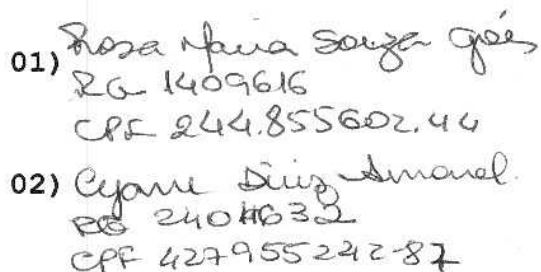 01) Rosa Maria Souza Góes
RG 1409616
CPF 244.855602.44
02) Diniz Amaral.
RG
CPF 427955242-87